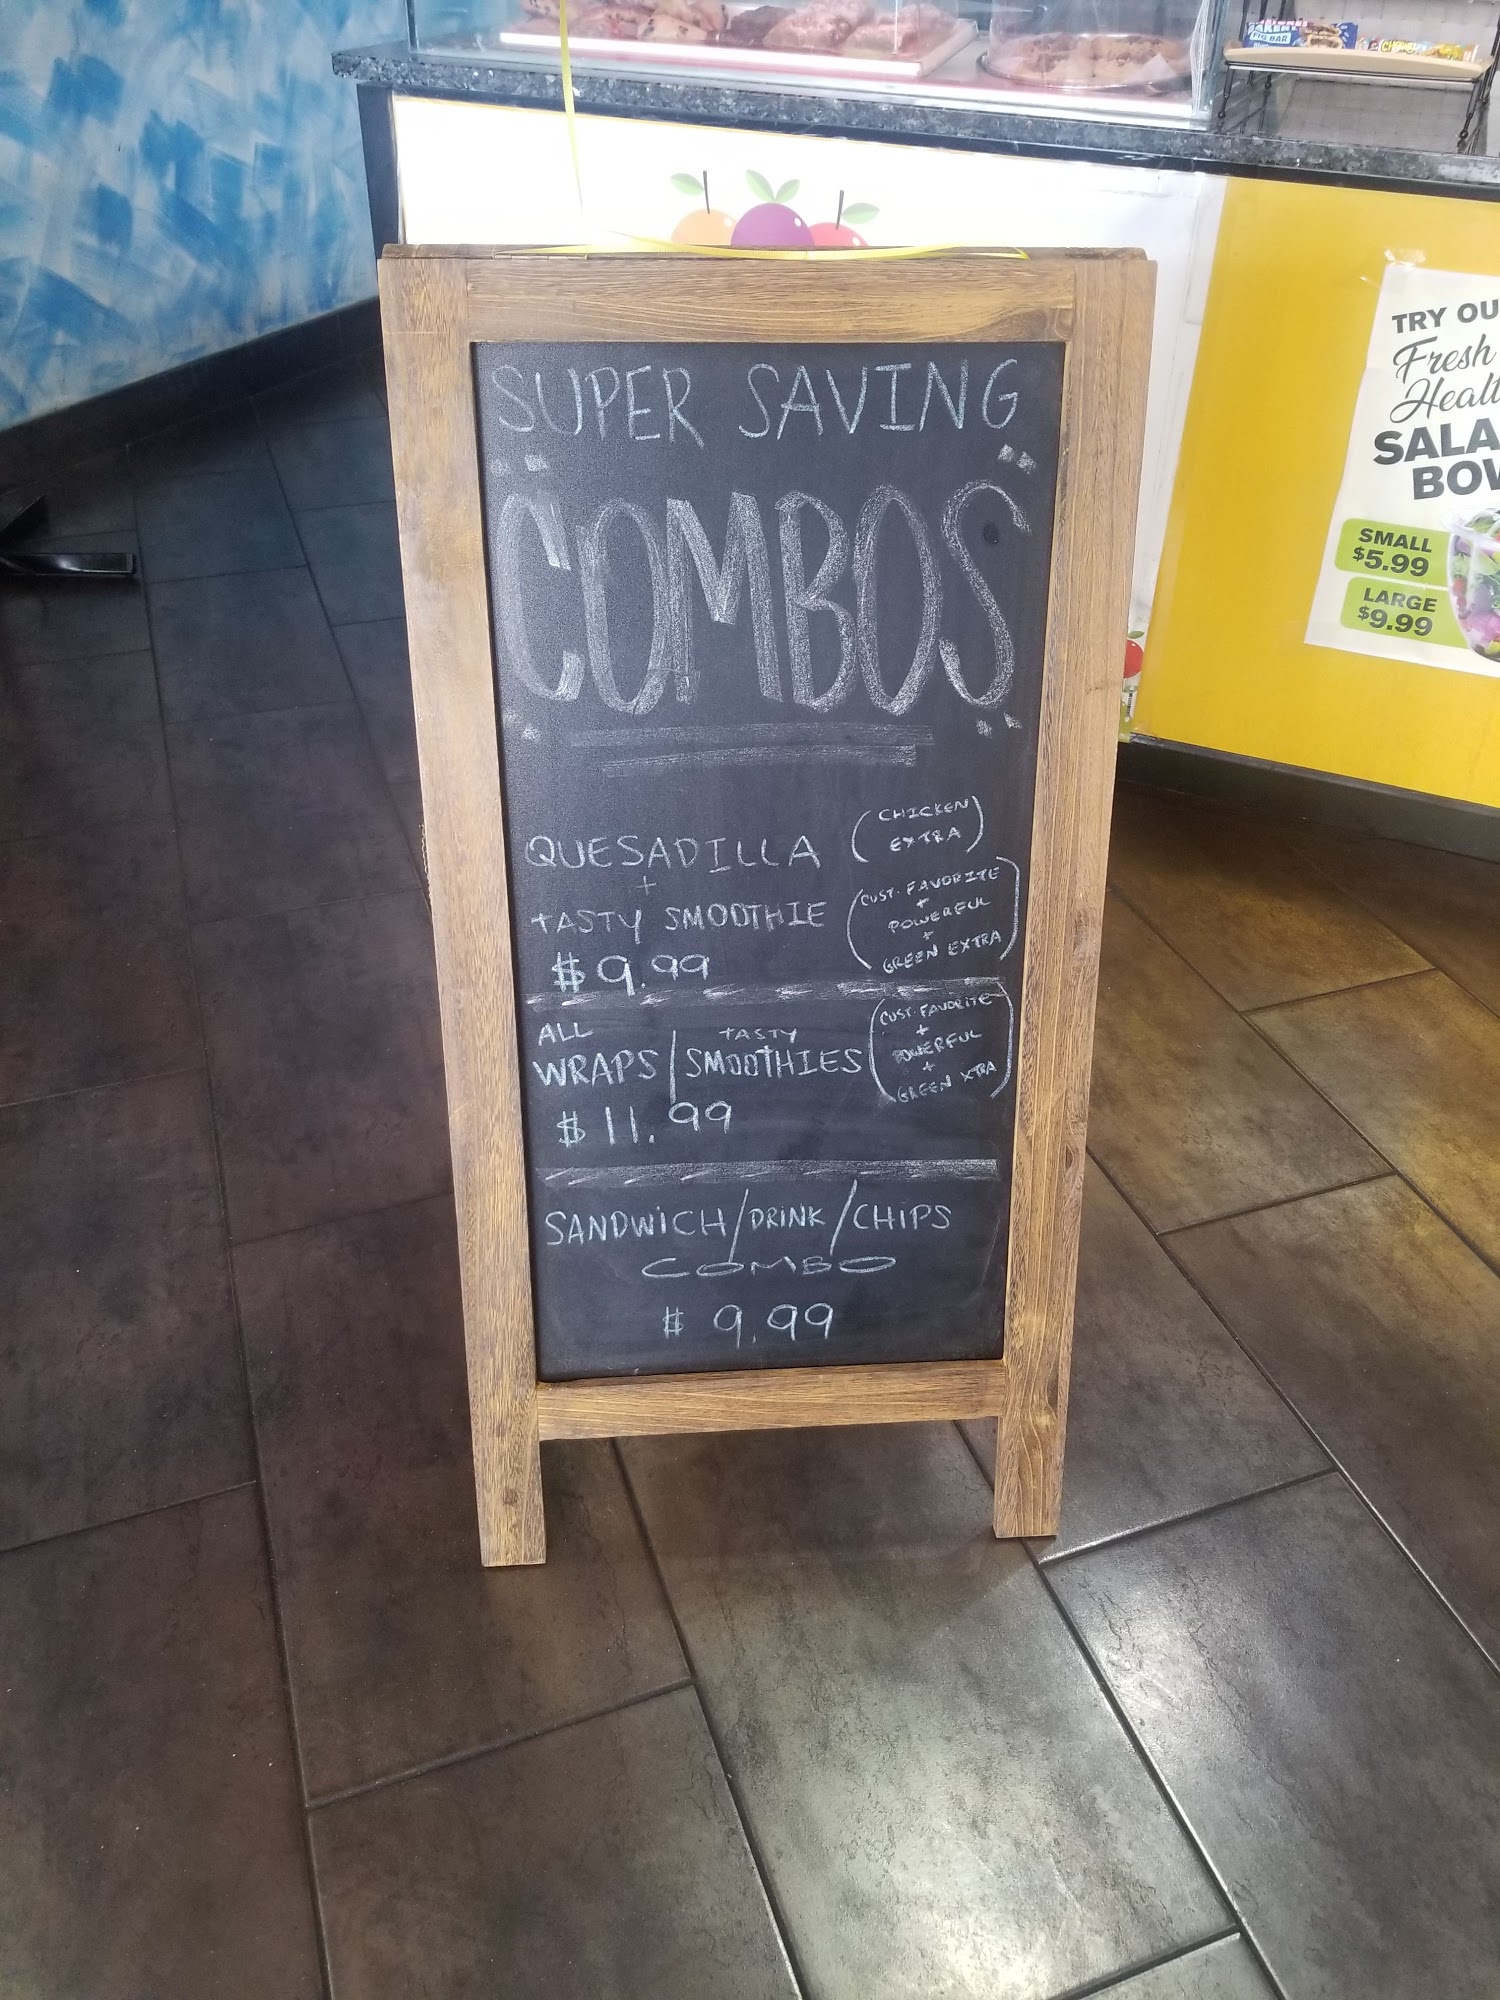 SUPER SAVING
COMBOS
QUESADILLA (CHICKEN EXTRA)
+
TASTY SMOOTHIE (CUST. FAVORITE + POWERFUL + GREEN EXTRA)
$9.99
ALL
WRAPS/TASTY SMOOTHIES (CUST. FAVORITE + POWERFUL + GREEN XTRA)
$11.99
SANDWICH/DRINK/CHIPS
COMBO
$9.99
TRY OU
Fresh
Healt
SALA
BOW
SMALL
$5.99
LARGE
$9.99
FIG BAR